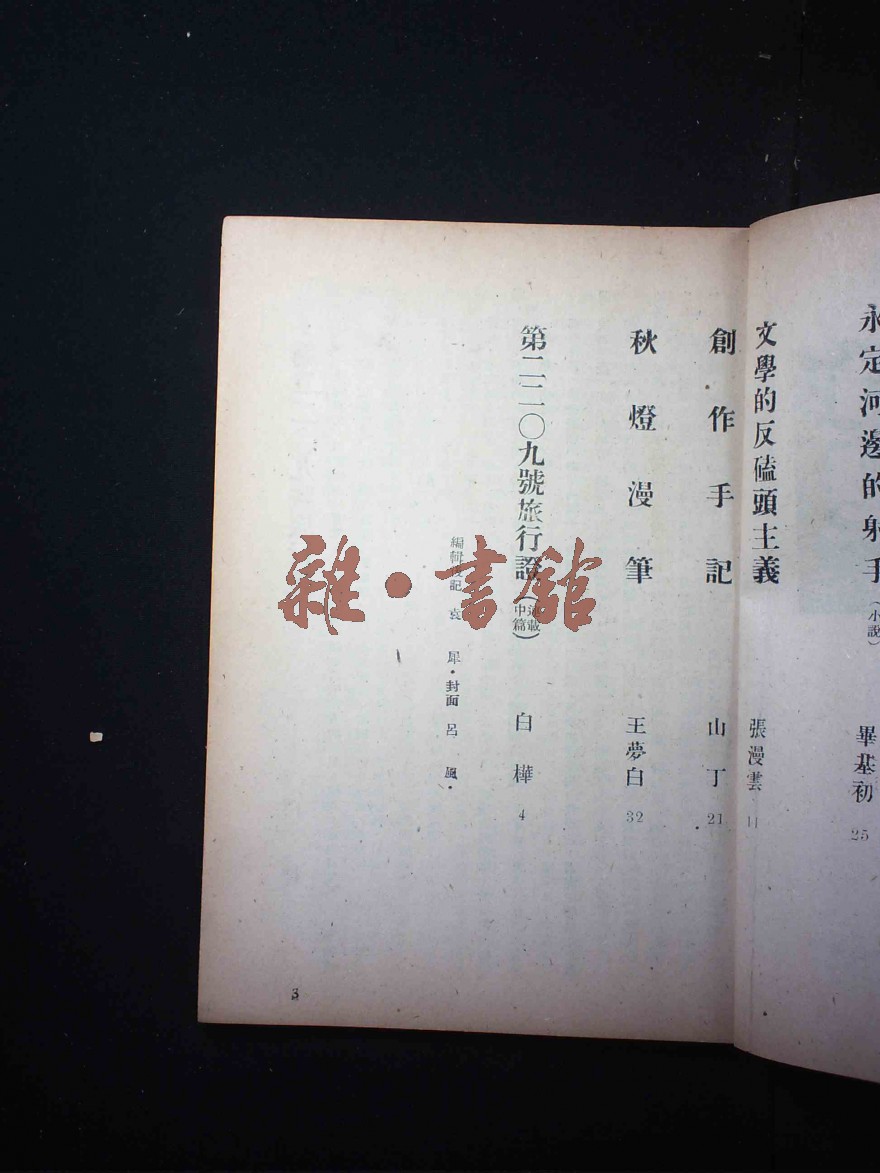 永定河邊的射手（小說） 畢基初 25
文學的反磕頭主義 張漫雲 11
創作手記 山丁 21
秋燈漫筆 王夢白 32
第二二〇九號旅行證（連載中篇） 白樺 4
編輯後記 袁犀·封面 呂風·
3
雜·書館